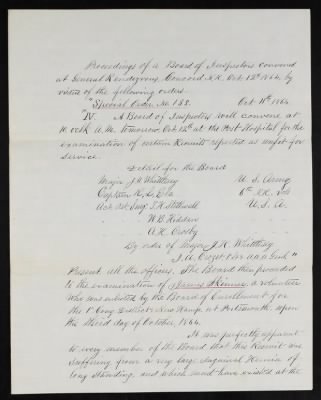 Proceedings of a Board of Inspectors convened
at General Rendezvous, Concord N.H. Oct. 12th 1864, by
virtue of the following orders.
"Special Order No. 133. Oct 11th 1864.
"IV. A Board of Inspectors will convene at
10 o'clk A.M. tomorrow Oct. 12th at the Post Hospital for the
examination of certain Recruits reported as unfit for
service.
Detail for the Board
Major J. H. Whittlesey U. S. Army
Captain 6th N.H. Vols
Act. Ast. Surg. U. S. A.
W. B.
A. H. Crosby
By order of Major J. H. Whittlesey
"
Present all the officers. The Board then proceeded
to the examination of Skinner, a volunteer
who was enlisted by the Board of Enrollment for
the 1st Cong. District New Hamp. at Portsmouth upon
the third day of October, 1864.
It was perfectly apparent
to every member of the Board that this Recruit was
suffering from a very large Inguinal Hernia of
long standing, and which must have existed at the